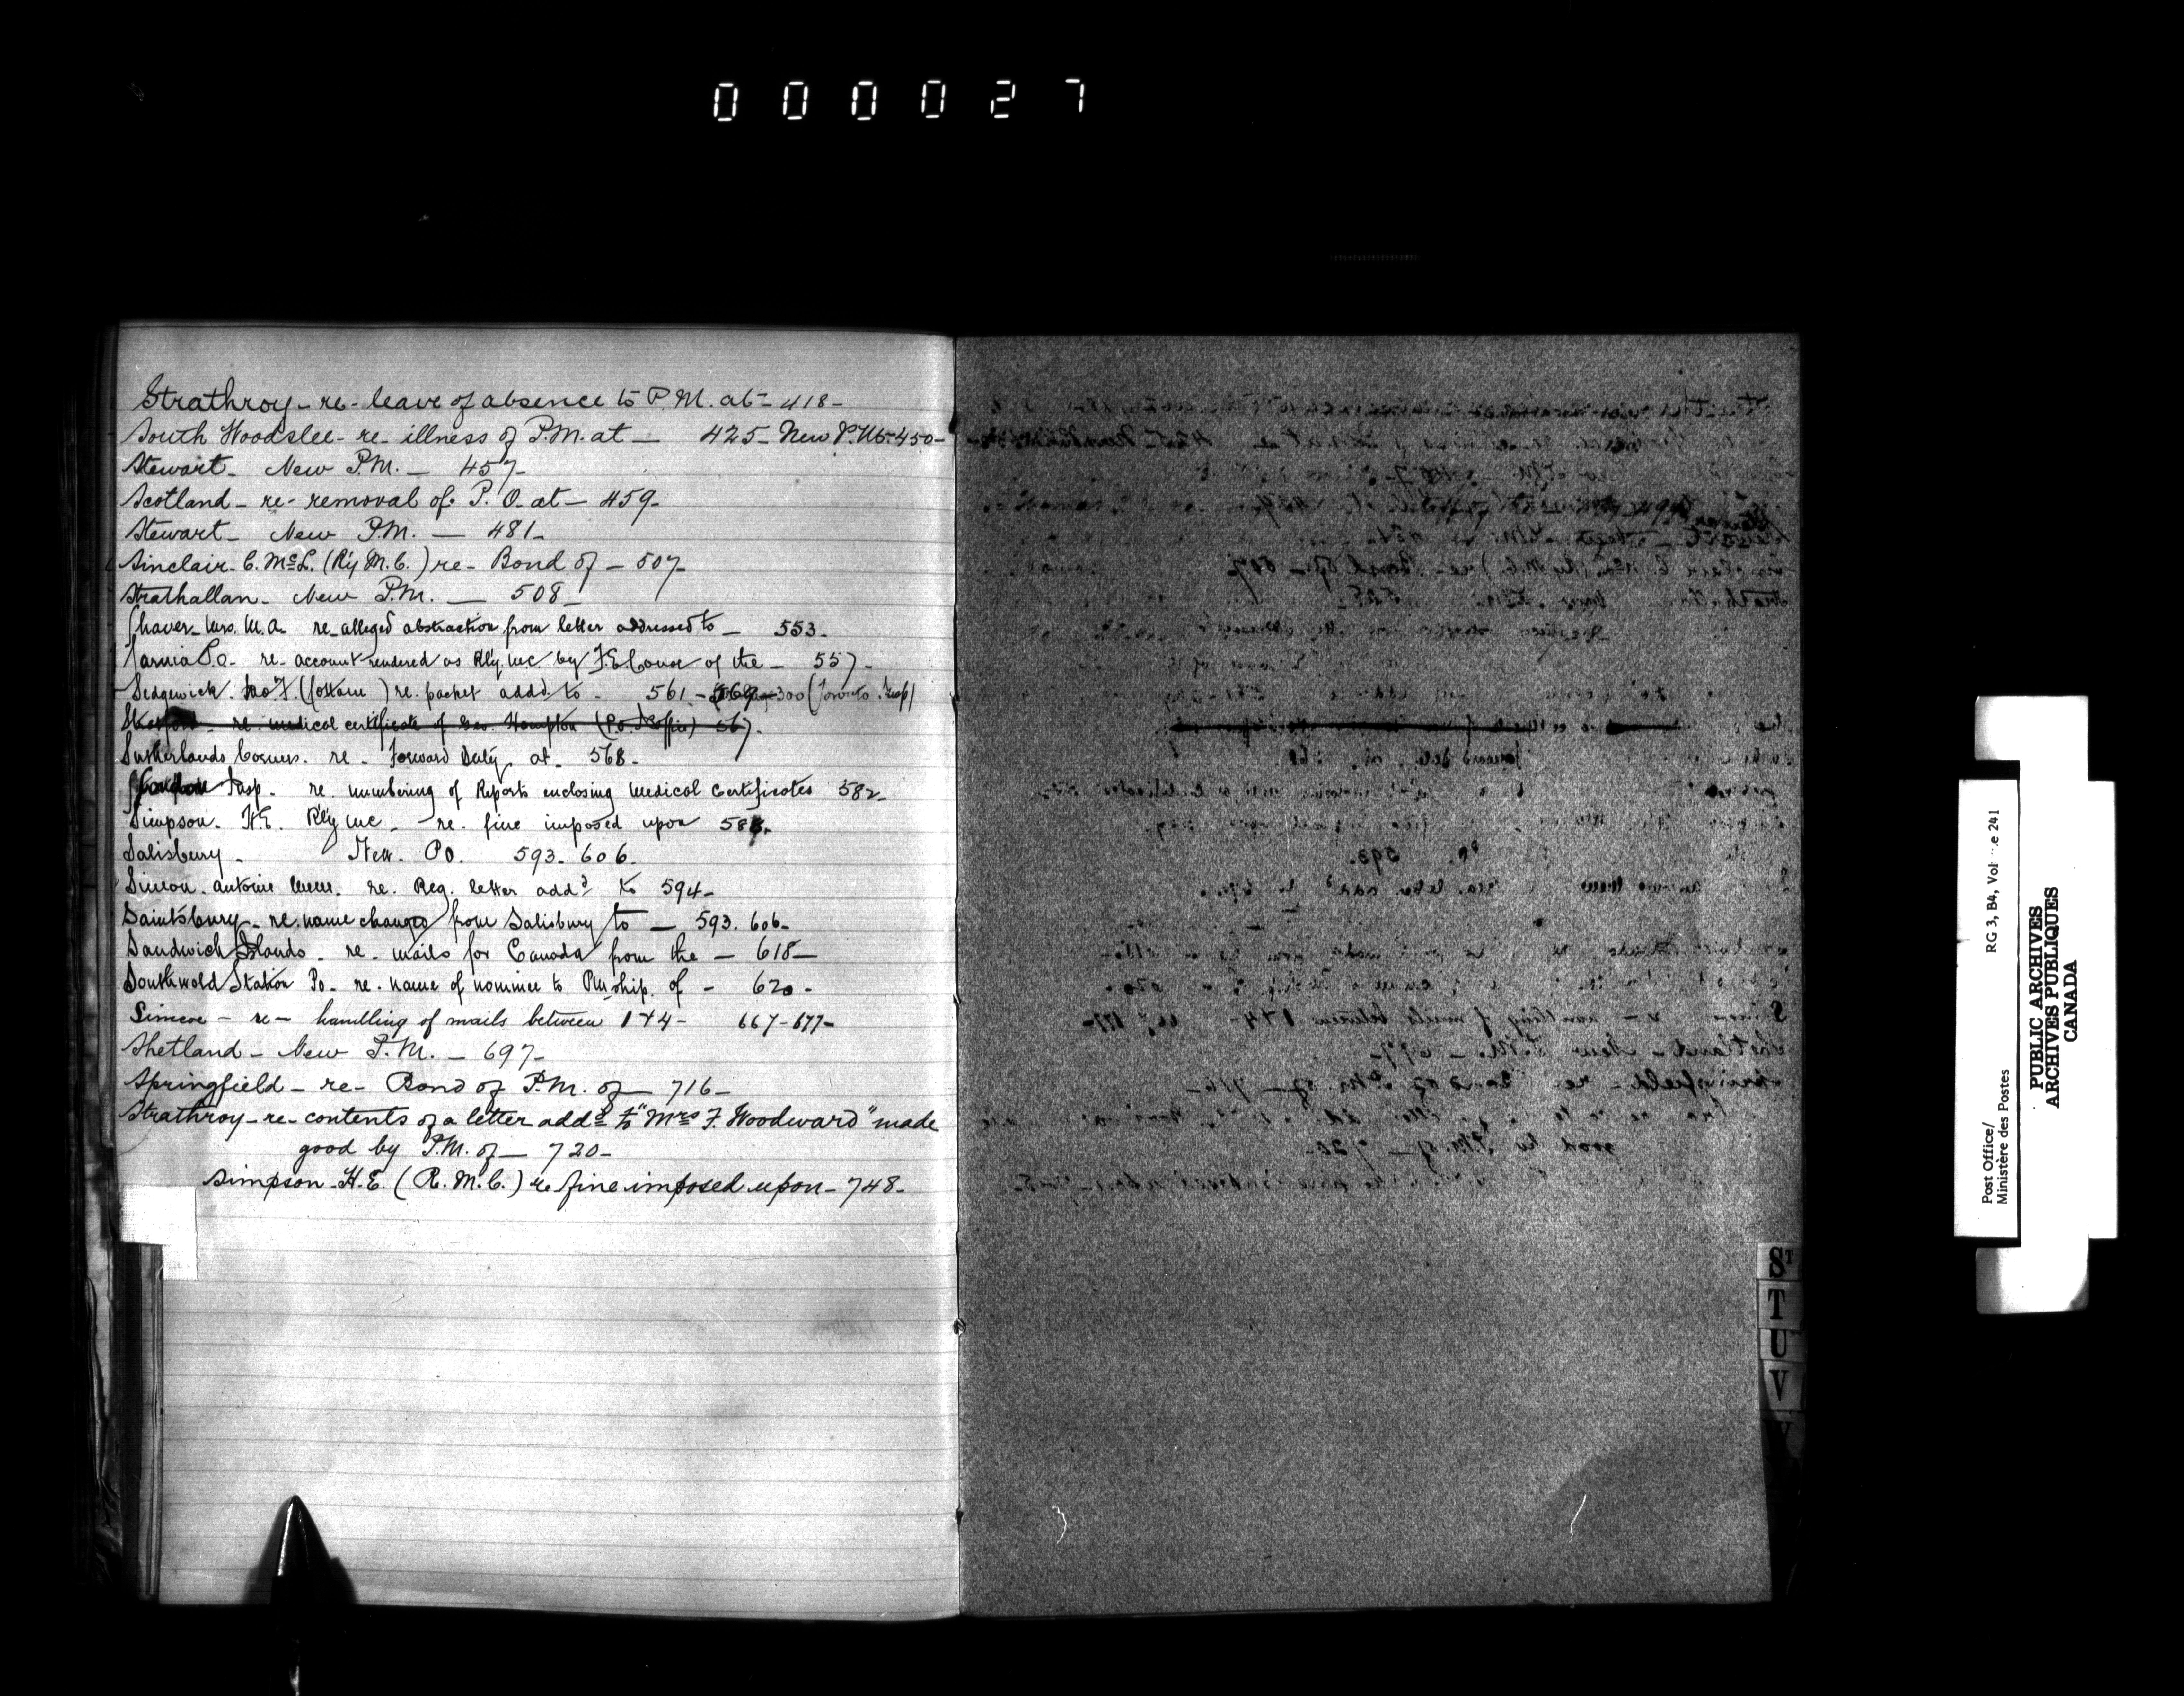 000027
Strathroy - re - leave of absence to P.M. at - 418 -
South Woodslee - re - illness of P.M. at - 425 - New P.M. - 450 -
Stewart - New P.M. - 457 -
Scotland - re - removal of P.O. at - 459 -
Stewart - New P.M. - 481 -
Sinclair - C. McL. (R'y M.C.) re - Bond of - 507 -
Strathallan - New P.M. - 508 -
Shaver - Mrs. M.A. re - alleged abstraction from letter addressed to - 553 -
Sarnia P.O. - re - account rendered as Rly. MC by F.E. of the - 557 -
Sedgewick . F. ( ) re. packet add'd. to - 561 - 300 (Toronto Insp)
re. medical certificate of Geo. Hampton 567.
Sutherlands Corners. re - Forward Duty, at - 568 -
Insp - re. numbering of Reports enclosing medical certificates 582 -
Simpson. H.E. Rly MC - re. fine imposed upon
Salisbury - New. PO. 593. 606.
Simon. Antoine re. Reg. letter addd to 594 -
Saintsbury - re. name changed from Salisbury to - 593. 606 -
Sandwich Islands - re - mails for Canada from the - 618 -
Southwold Station Po - re - name of nominee to PMship. of - 620 -
Simcoe - re - handling of mails between 1 + 4 - 667 - 677 -
Shetland - New P.M. - 697 -
Springfield - re - Bond of P.M. of - 716 -
Strathroy - re - contents of a letter addd to "Mrs F. Woodward" made
good by P.M. of - 720 -
Simpson - H.E. (R.M.C.) re fine imposed upon - 748 -
ST
T
U
V
Post Office/
Ministère des Postes
RG 3, B4, Vol e 241
PUBLIC ARCHIVES
ARCHIVES PUBLIQUES
CANADA